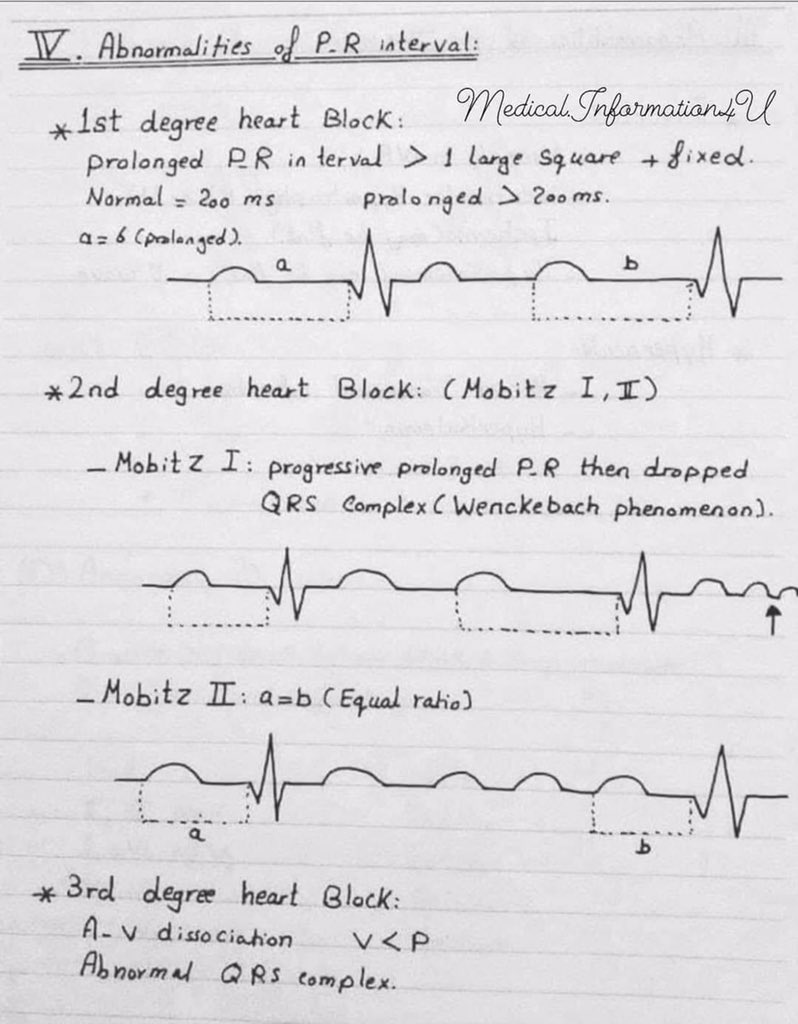 IV. Abnormalities of P-R interval:
Medical.Information4U
* 1st degree heart Block:
prolonged P-R interval > 1 large square + fixed.
Normal = 200 ms prolonged > 200 ms.
a = 6 (prolonged).
a b
* 2nd degree heart Block: (Mobitz I, II)
– Mobitz I: progressive prolonged P-R then dropped
QRS complex (Wenckebach phenomenon).
– Mobitz II: a=b (Equal ratio)
a b
* 3rd degree heart Block:
A-V dissociation V < P
Abnormal QRS complex.